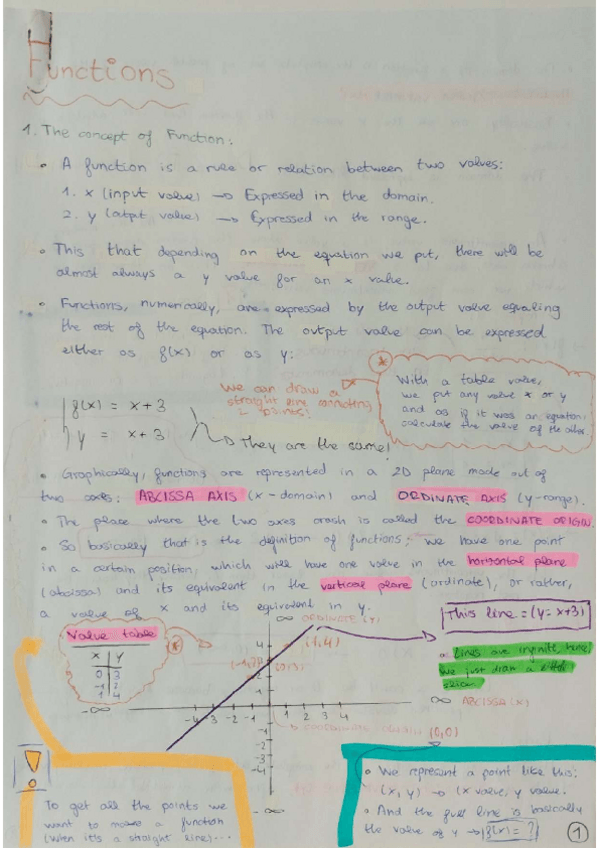 Functions
1. The concept of Function:
• A function is a rule or relation between two values:
1. x (input value) → Expressed in the domain.
2. y (output value) → Expressed in the range.
• This that depending on the equation we put, there will be
almost always a y value for an x value.
• Functions, numerically, are expressed by the output value equaling
the rest of the equation. The output value can be expressed
either as f(x) or as y:
We can draw a
straight line connecting
2 points!
*
With a table value,
we put any value x or y
and as if it was an equation,
calculate the value of the other
f(x) = x+3
y = x+3
→ They are the same!
• Graphically, functions are represented in a 2D plane made out of
two axes: ABCISSA AXIS (x-domain) and ORDINATE AXIS (y-range).
• The place where the two axes crash is called the COORDINATE ORIGIN.
• So basically that is the definition of functions: we have one point
in a certain position, which will have one value in the horizontal plane
(abcissa) and its equivalent in the vertical plane (ordinate), or rather,
a value of x and its equivalent in y.
This line = (y = x+3)
Value table
*
x y
0 3
-1 2
1 4
∞ ORDINATE (Y)
(1,4)
(-1,2)
(0,3)
4
3
2
1
-4 -3 -2 -1
1 2 3 4
-1
-2
-3
-4
-∞
-∞
∞ ABCISSA (X)
COORDINATE ORIGIN (0,0)
Lines are infinite, hence
we just draw a little
slice.
To get all the points we
want to make a function
(when it's a straight line)...
• We represent a point like this:
(x, y) → (x value, y value.
• And the full line is basically
the value of y → f(x) = ?
1